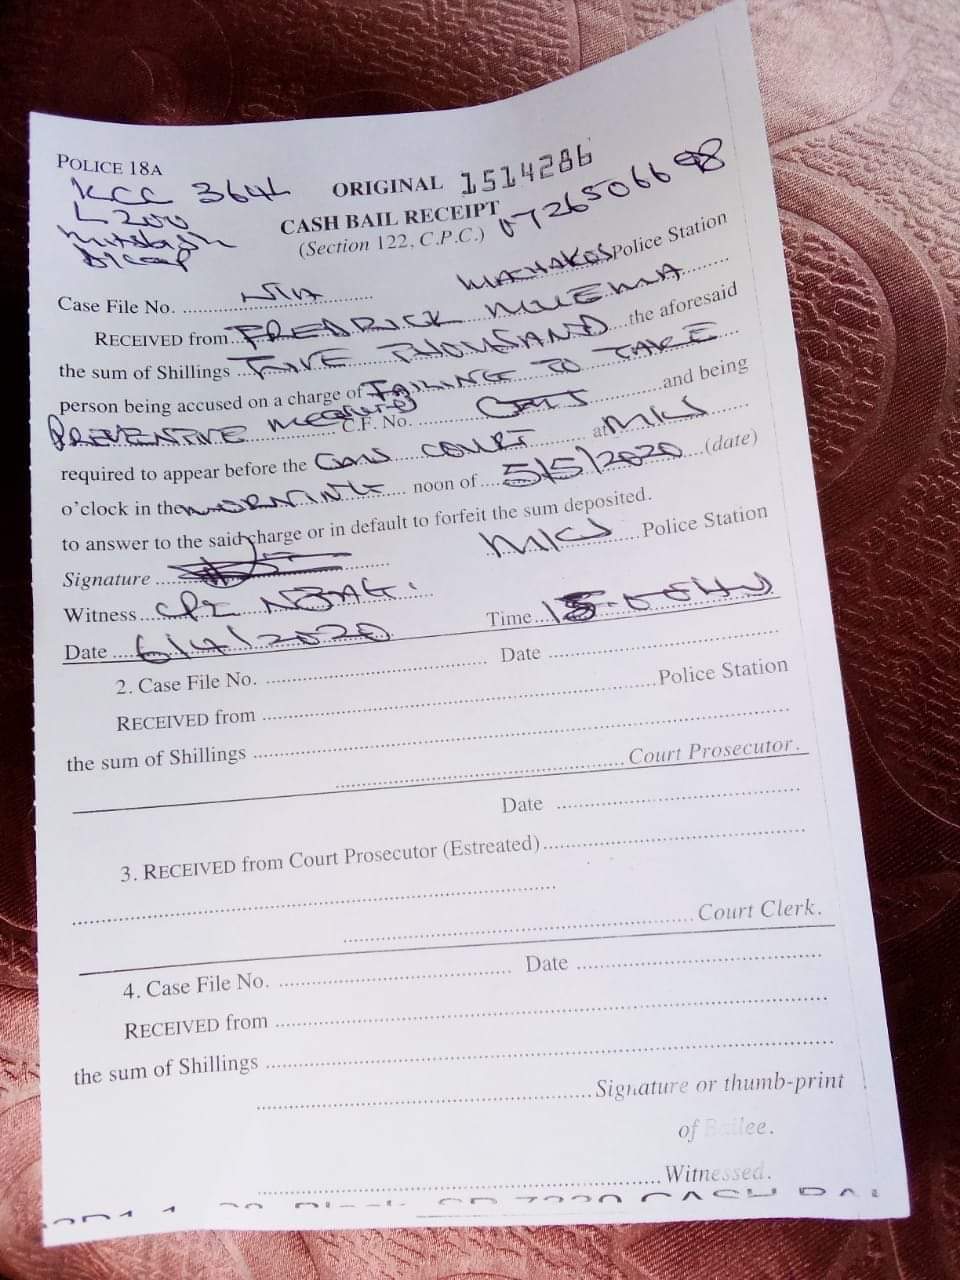 POLICE 18A
KCC 364L
ORIGINAL 1514286
L200
CASH BAIL RECEIPT
0726506698
(Section 122, C.P.C.)
Case File No. N/A MACHAKOS Police Station
RECEIVED from FREDRICK MUEMA
the sum of Shillings FIVE THOUSAND the aforesaid
person being accused on a charge of FAILING TO TAKE
PREVENTIVE MEASURES C.F. No. and being
required to appear before the COURT at MKS
o'clock in the MORNING noon of 5/5/2020 (date)
to answer to the said charge or in default to forfeit the sum deposited.
Signature MKS Police Station
Witness CPL
Date 6/4/2020 Time
2. Case File No. Date
RECEIVED from Police Station
the sum of Shillings
Court Prosecutor.
Date
3. RECEIVED from Court Prosecutor (Estreated)
Court Clerk.
4. Case File No. Date
RECEIVED from
the sum of Shillings
Signature or thumb-print
of Bailee.
Witnessed.